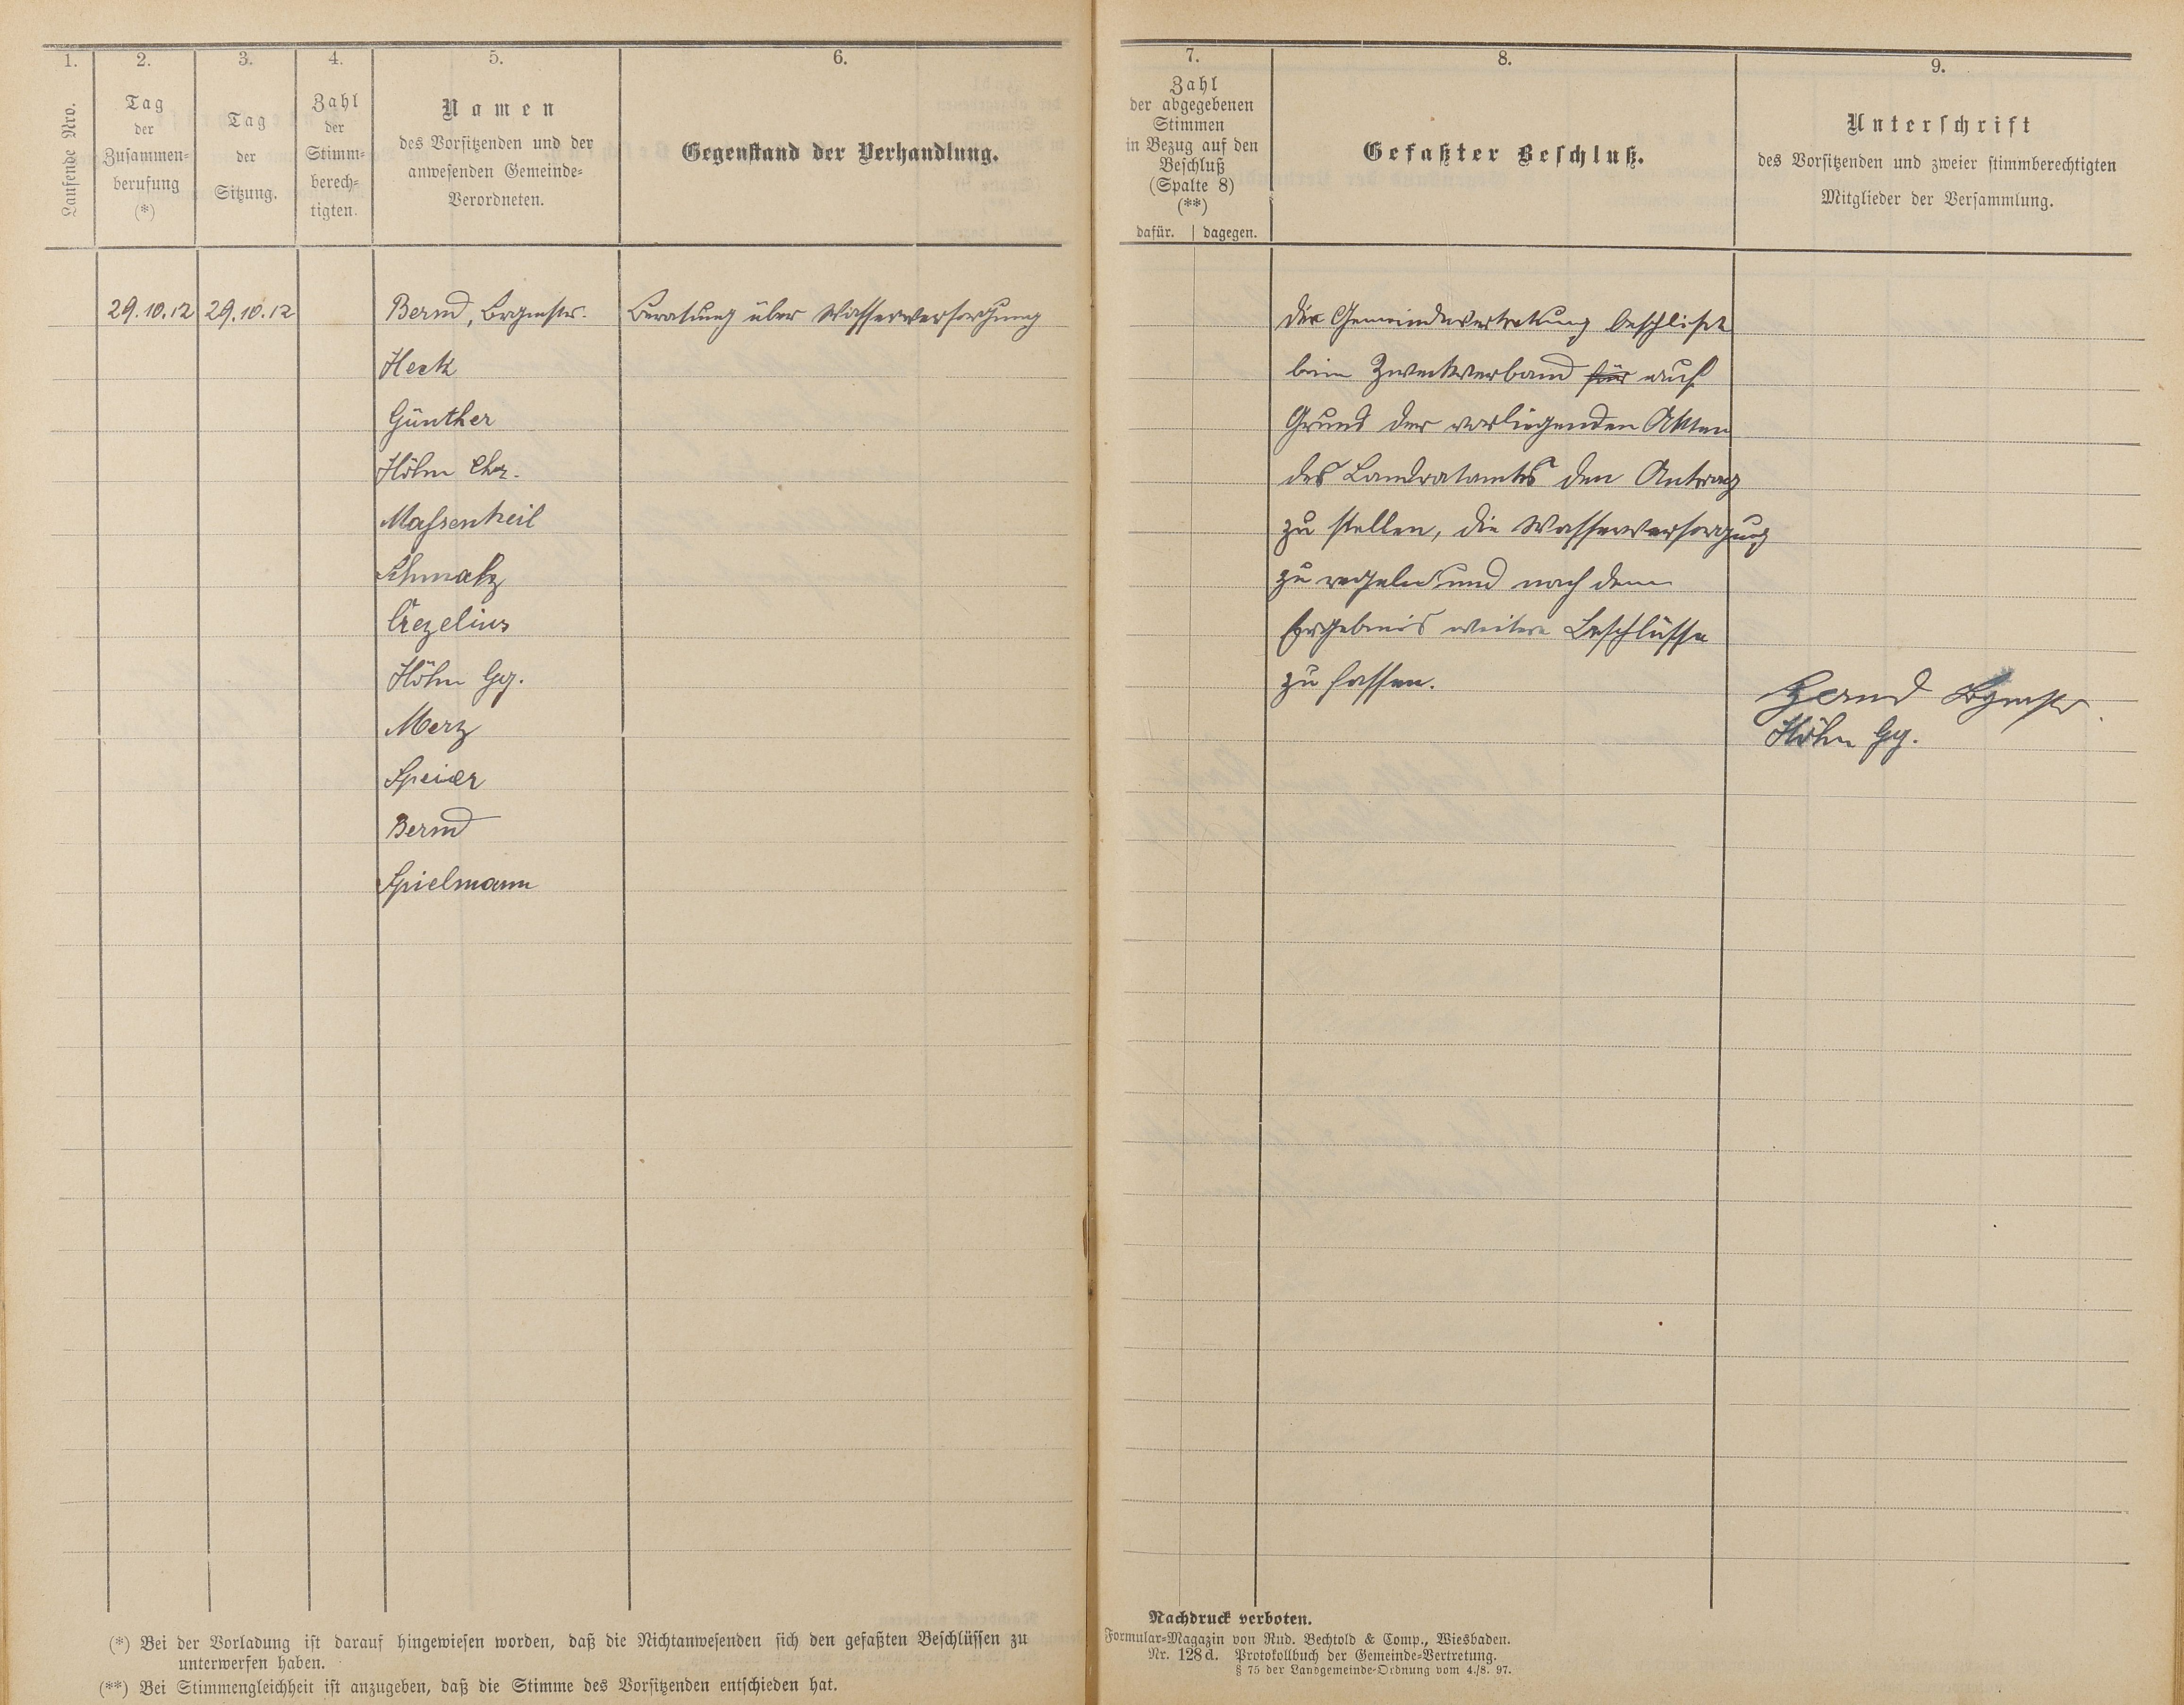 1.
Laufende Nro.
2.
Tag
der
Zusammen-
berufung
(*)
3.
Tag
der
Sitzung.
4.
Zahl
der
Stimm-
berech-
tigten.
5.
Namen
des Vorsitzenden und der
anwesenden Gemeinde-
Verordneten.
6.
Gegenstand der Verhandlung.
7.
Zahl
der abgegebenen
Stimmen
in Bezug auf den
Beschluß
(Spalte 8)
(**)
dafür. | dagegen.
8.
Gefaßter Beschluß.
9.
Unterschrift
des Vorsitzenden und zweier stimmberechtigten
Mitglieder der Versammlung.
29.10.12 29.10.12 Bernd, Brgmstr. Beratung über Wasserversorgung
Heck
Günther
Höhn Chr.
Massenkeil
Schmalz
Crezelius
Höhn Gg.
Merz
Speier
Bernd
Spielmann
die Gemeindevertretung beschließt
beim Zweckverband für auf
Grund der vorliegenden Akten
des Landratamts den Antrag
zu stellen, die Wasserversorgung
zu regeln und nach dem
Ergebnis weitere Beschlüsse
zu fassen.
Bernd Bgmstr
Höhn Gg.
(*) Bei der Vorladung ist darauf hingewiesen worden, daß die Nichtanwesenden sich den gefaßten Beschlüssen zu
unterwerfen haben.
(**) Bei Stimmengleichheit ist anzugeben, daß die Stimme des Vorsitzenden entschieden hat.
Nachdruck verboten.
Formular-Magazin von Rud. Bechtold & Comp., Wiesbaden.
Nr. 128 d. Protokollbuch der Gemeinde-Vertretung.
§ 75 der Landgemeinde-Ordnung vom 4./8. 97.